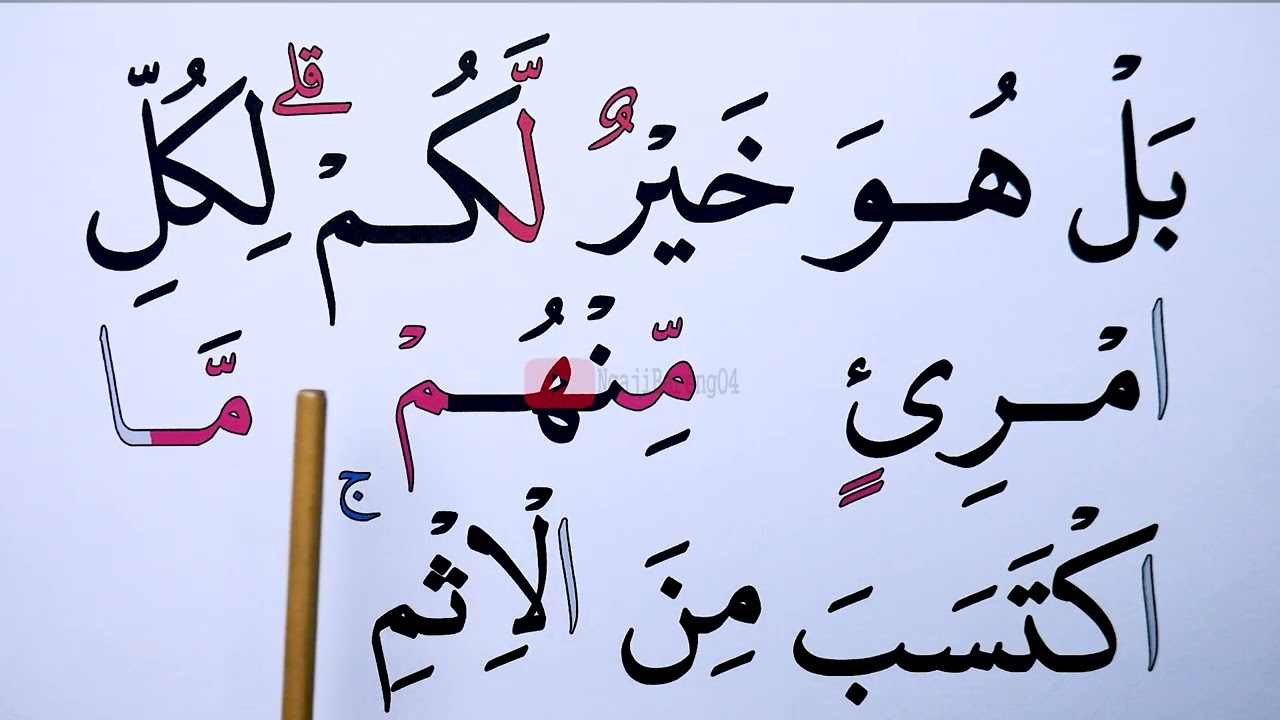 بَلْ هُوَ خَيْرٌ لَّكُمْ ۗ لِكُلِّ
امْرِئٍ مِّنْهُمْ مَّا
اكْتَسَبَ مِنَ الْاِثْمِ ۚ
NgajiBareng04